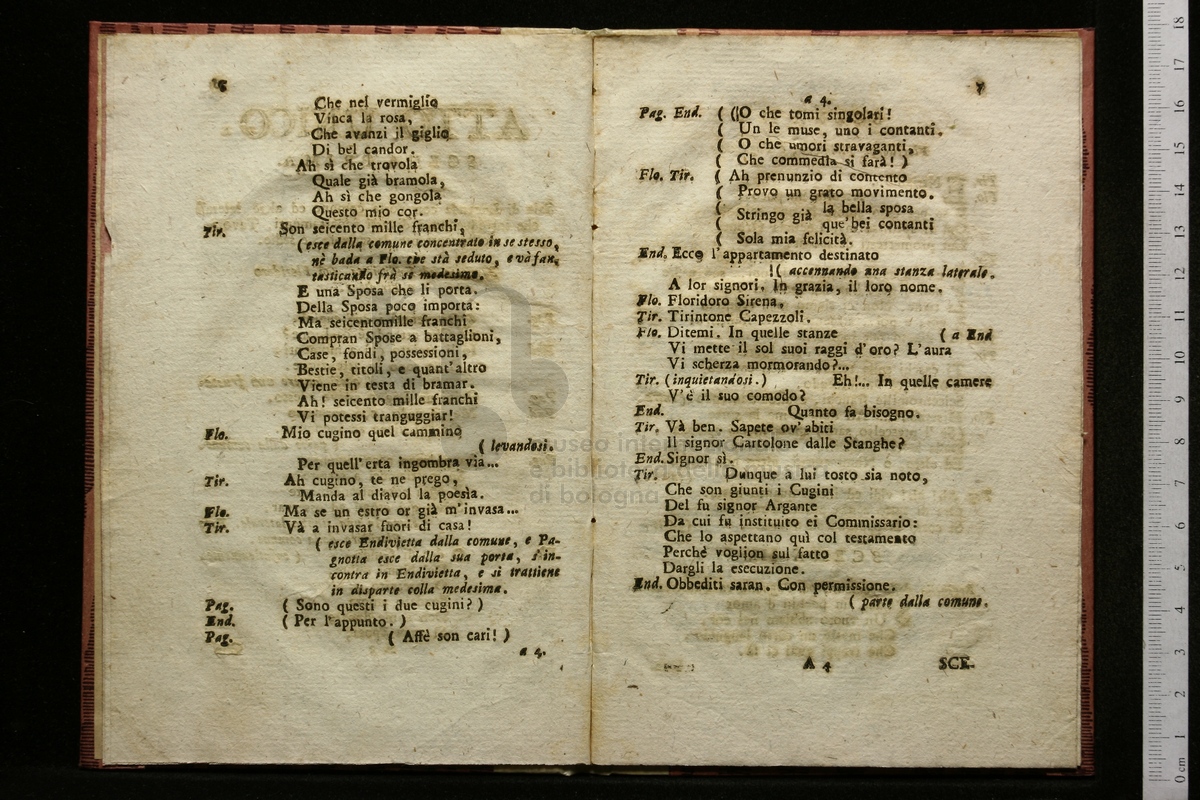 6
Che nel vermiglio
Vinca la rosa,
Che avanzi il giglio
Di bel candor.
Ah sì che trovola
Quale già bramola,
Ah sì che gongola
Questo mio cor.
Tir. Son seicento mille franchi,
(esce dalla comune concentrato in se stesso,
nè bada a Flo. che stà seduto, e và fan-
tasticando frà se medesimo.
E una Sposa che li porta.
Della Sposa poco importa:
Ma seicentomille franchi
Compran Spose a battaglioni,
Case, fondi, possessioni,
Bestie, titoli, e quant'altro
Viene in testa di bramar.
Ah! seicento mille franchi
Vi potessi tranguggiar!
Flo. Mio cugino quel cammino
( levandosi.
Per quell'erta ingombra via...
Tir. Ah cugino, te ne prego,
Manda al diavol la poesìa.
Flo. Ma se un estro or già m'invasa...
Tir. Và a invasar fuori di casa!
( esce Endivietta dalla comune, e Pa-
gnotta esce dalla sua porta, s'in-
contra in Endivietta, e si trattiene
in disparte colla medesima.
Pag. ( Sono questi i due cugini? )
End. ( Per l'appunto. )
Pag. ( Affè son cari! )
a 4.
7
a 4.
Pag. End. ( (O che tomi singolari!
( Un le muse, uno i contanti.
( O che umori stravaganti,
( Che commedia si farà! )
Flo. Tir. ( Ah prenunzio di contento
( Provo un grato movimento.
( Stringo già la bella sposa
( que' bei contanti
( Sola mia felicità.
End. Ecco l'appartamento destinato
( accennando una stanza laterale.
A lor signori. In grazia, il loro nome.
Flo. Floridoro Sirena,
Tir. Tirintone Capezzoli.
Flo. Ditemi. In quelle stanze ( a End
Vi mette il sol suoi raggi d'oro? L'aura
Vi scherza mormorando?...
Tir. (inquietandosi.) Eh!... In quelle camere
V'è il suo comodo?
End. Quanto fa bisogno.
Tir. Và ben. Sapete ov'abiti
Il signor Cartolone dalle Stanghe?
End. Signor sì.
Tir. Dunque a lui tosto sia noto,
Che son giunti i Cugini
Del fu signor Argante
Da cui fu instituito ei Commissario:
Che lo aspettano quì col testamento
Perchè voglion sul fatto
Dargli la esecuzione.
End. Obbediti saran. Con permissione.
( parte dalla comune.
A 4 SCE-
museo
e biblioteca
di bologna
0 cm 1 2 3 4 5 6 7 8 9 10 11 12 13 14 15 16 17 18